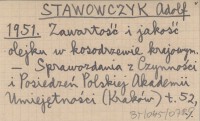 STAWOWCZYK Adolf
1951. Zawartość i jakość
olejku w kosodrzewie krajowym.
— Sprawozdania z Czynności
i Posiedzeń Polskiej Akademii
Umiejętności (Kraków) t. 52,